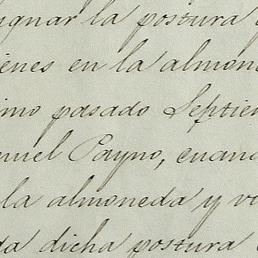 ignar la postura
ienes en la almone
imo pasado Septiem
nuel Payno, cuand
la almoneda y v
da dicha postura